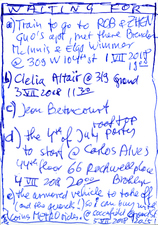 WAITING FOR
a) Train to go to ROB & ZHEN
Guo's apt, met there Brendan
McInnis & Elijs Wimmer
@ 309 W 104th st 1 VII 2018
18 00
b) Clelia, Altair @ 319 Grand
3 VII 2018 11 30
c) Jean Betancourt
d) the 4th of July rooftop parties
to start @ Carlos Alves
4th floor 66 Rockwell place
4 VII 2018 20 00 Brooklyn
e) the armored vehicle to take off
(and the guards!) so I can buy with
coins MetroCards. @
5 VII 2018